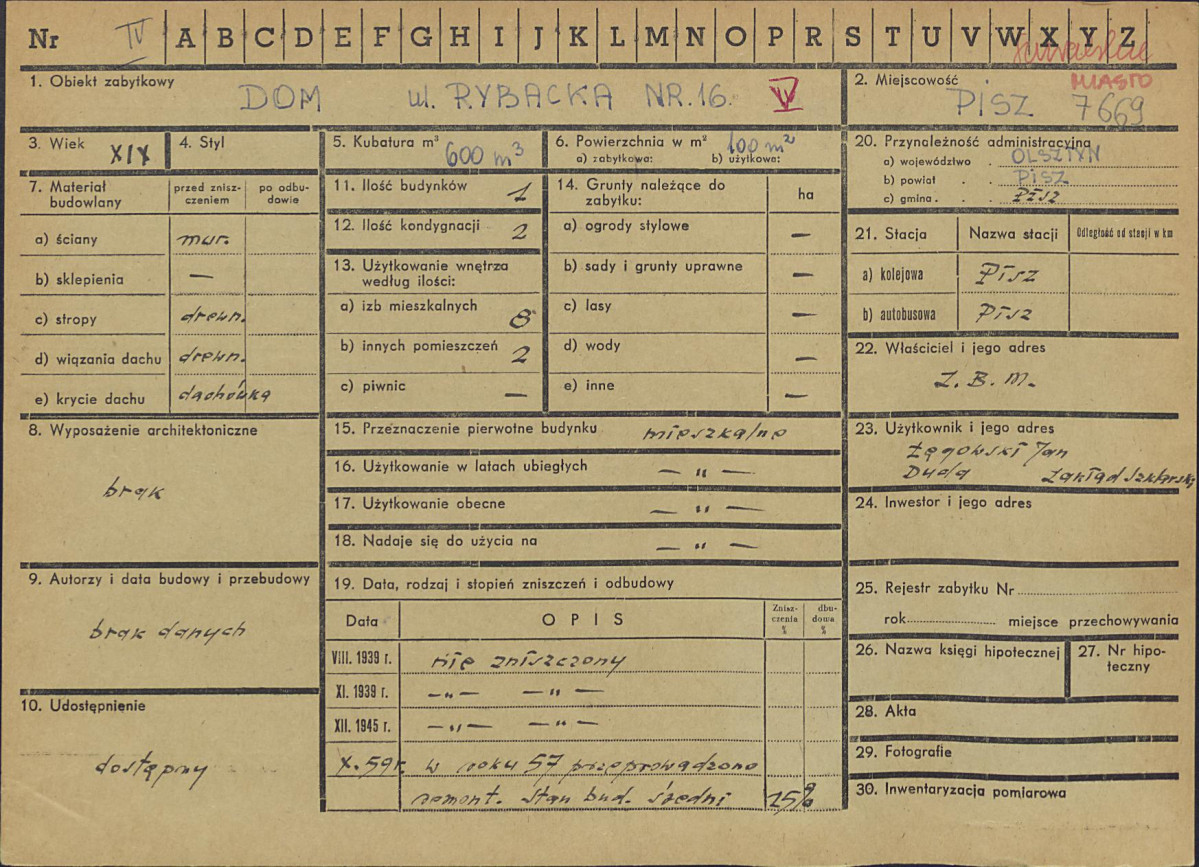 Nr IV A B C D E F G H I J K L M N O P R S T U V W X Y Z
1. Obiekt zabytkowy
DOM ul. RYBACKA NR. 16. IV
2. Miejscowość MIASTO
PISZ 7669
3. Wiek XIX
4. Styl
5. Kubatura m³ 600 m³
6. Powierzchnia w m² 100 m²
a) zabytkowa: b) użytkowa:
20. Przynależność administracyjna
a) województwo . OLSZTYN
b) powiat . . PISZ
c) gmina . . . Pisz
7. Materiał budowlany
przed zniszczeniem
po odbudowie
a) ściany mur.
b) sklepienia —
c) stropy drewn.
d) wiązania dachu drewn.
e) krycie dachu dachówka
11. Ilość budynków 1
12. Ilość kondygnacji 2
13. Użytkowanie wnętrza
według ilości:
a) izb mieszkalnych 8
b) innych pomieszczeń 2
c) piwnic —
14. Grunty należące do
zabytku:
ha
a) ogrody stylowe —
b) sady i grunty uprawne —
c) lasy —
d) wody —
e) inne —
21. Stacja
Nazwa stacji
Odległość od stacji w km
a) kolejowa Pisz
b) autobusowa Pisz
22. Właściciel i jego adres
Z. B. M.
8. Wyposażenie architektoniczne
brak
15. Przeznaczenie pierwotne budynku mieszkalne
16. Użytkowanie w latach ubiegłych — „ —
17. Użytkowanie obecne — „ —
18. Nadaje się do użycia na — „ —
23. Użytkownik i jego adres
Łęgowski Jan
Duda Zakład Szklarski
24. Inwestor i jego adres
9. Autorzy i data budowy i przebudowy
brak danych
10. Udostępnienie
dostępny
19. Data, rodzaj i stopień zniszczeń i odbudowy
Data
OPIS
Zniszczenia %
dbudowa %
VIII. 1939 r. nie zniszczony
XI. 1939 r. — „ — — „ —
XII. 1945 r. — „ — — „ —
X. 59 r. w roku 57 przeprowadzono
remont. Stan bud. średni 25%
25. Rejestr zabytku Nr
rok miejsce przechowywania
26. Nazwa księgi hipotecznej
27. Nr hipoteczny
28. Akta
29. Fotografie
30. Inwentaryzacja pomiarowa